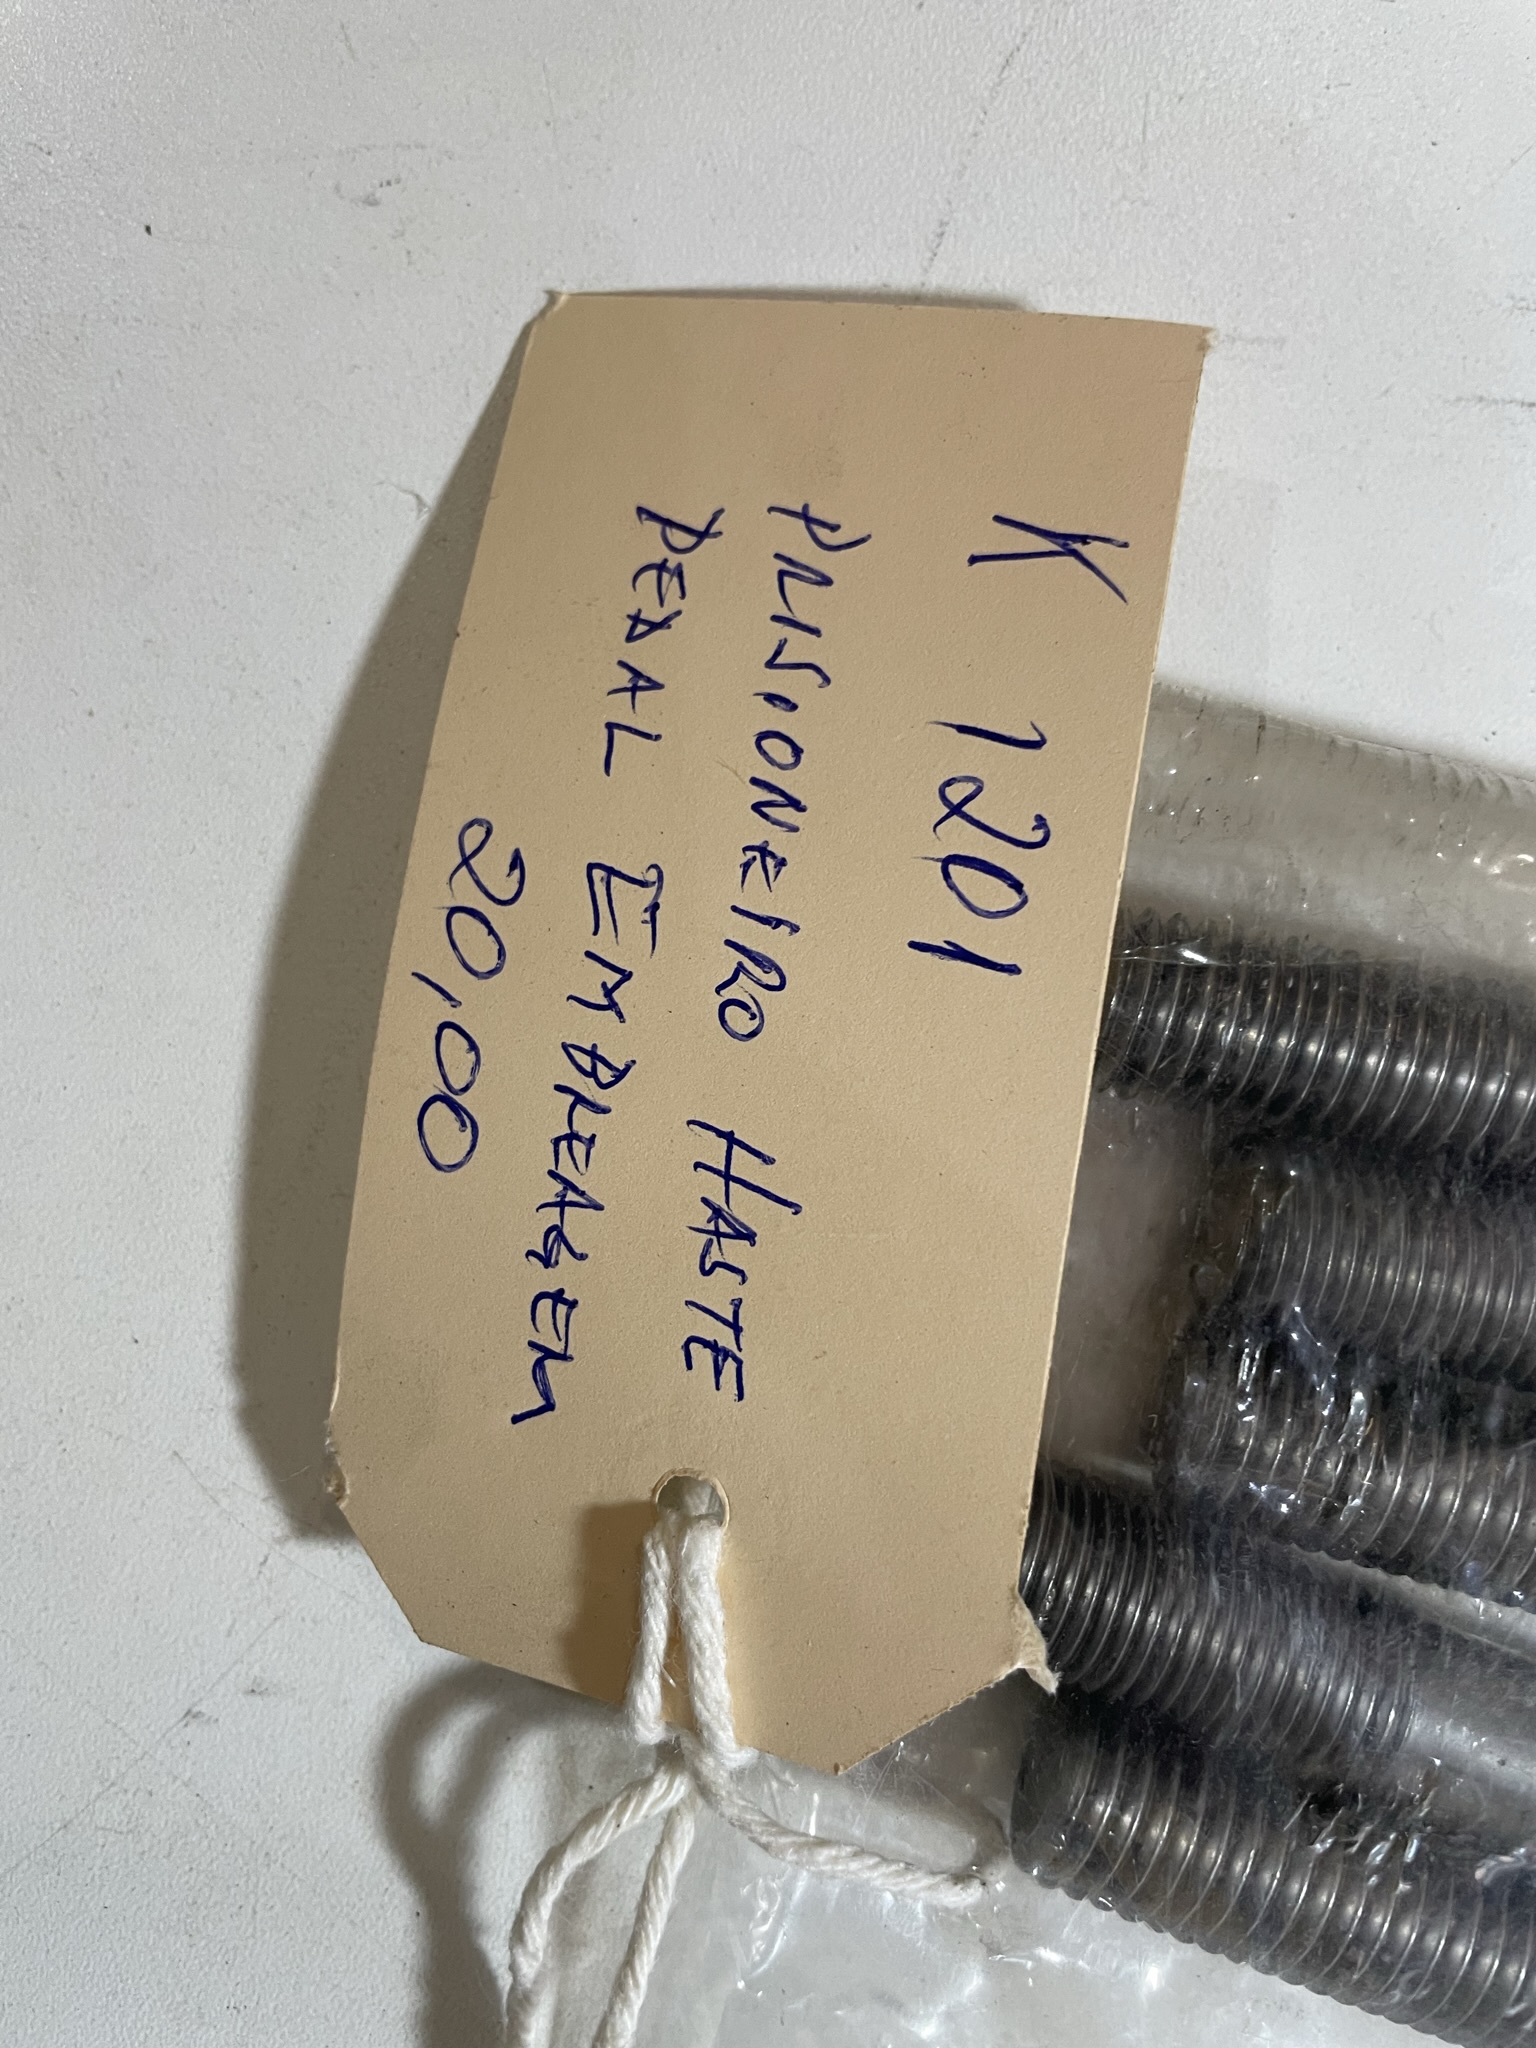 K 1201
PRISIONEIRO HASTE
PEDAL EMBREAGEM
20,00